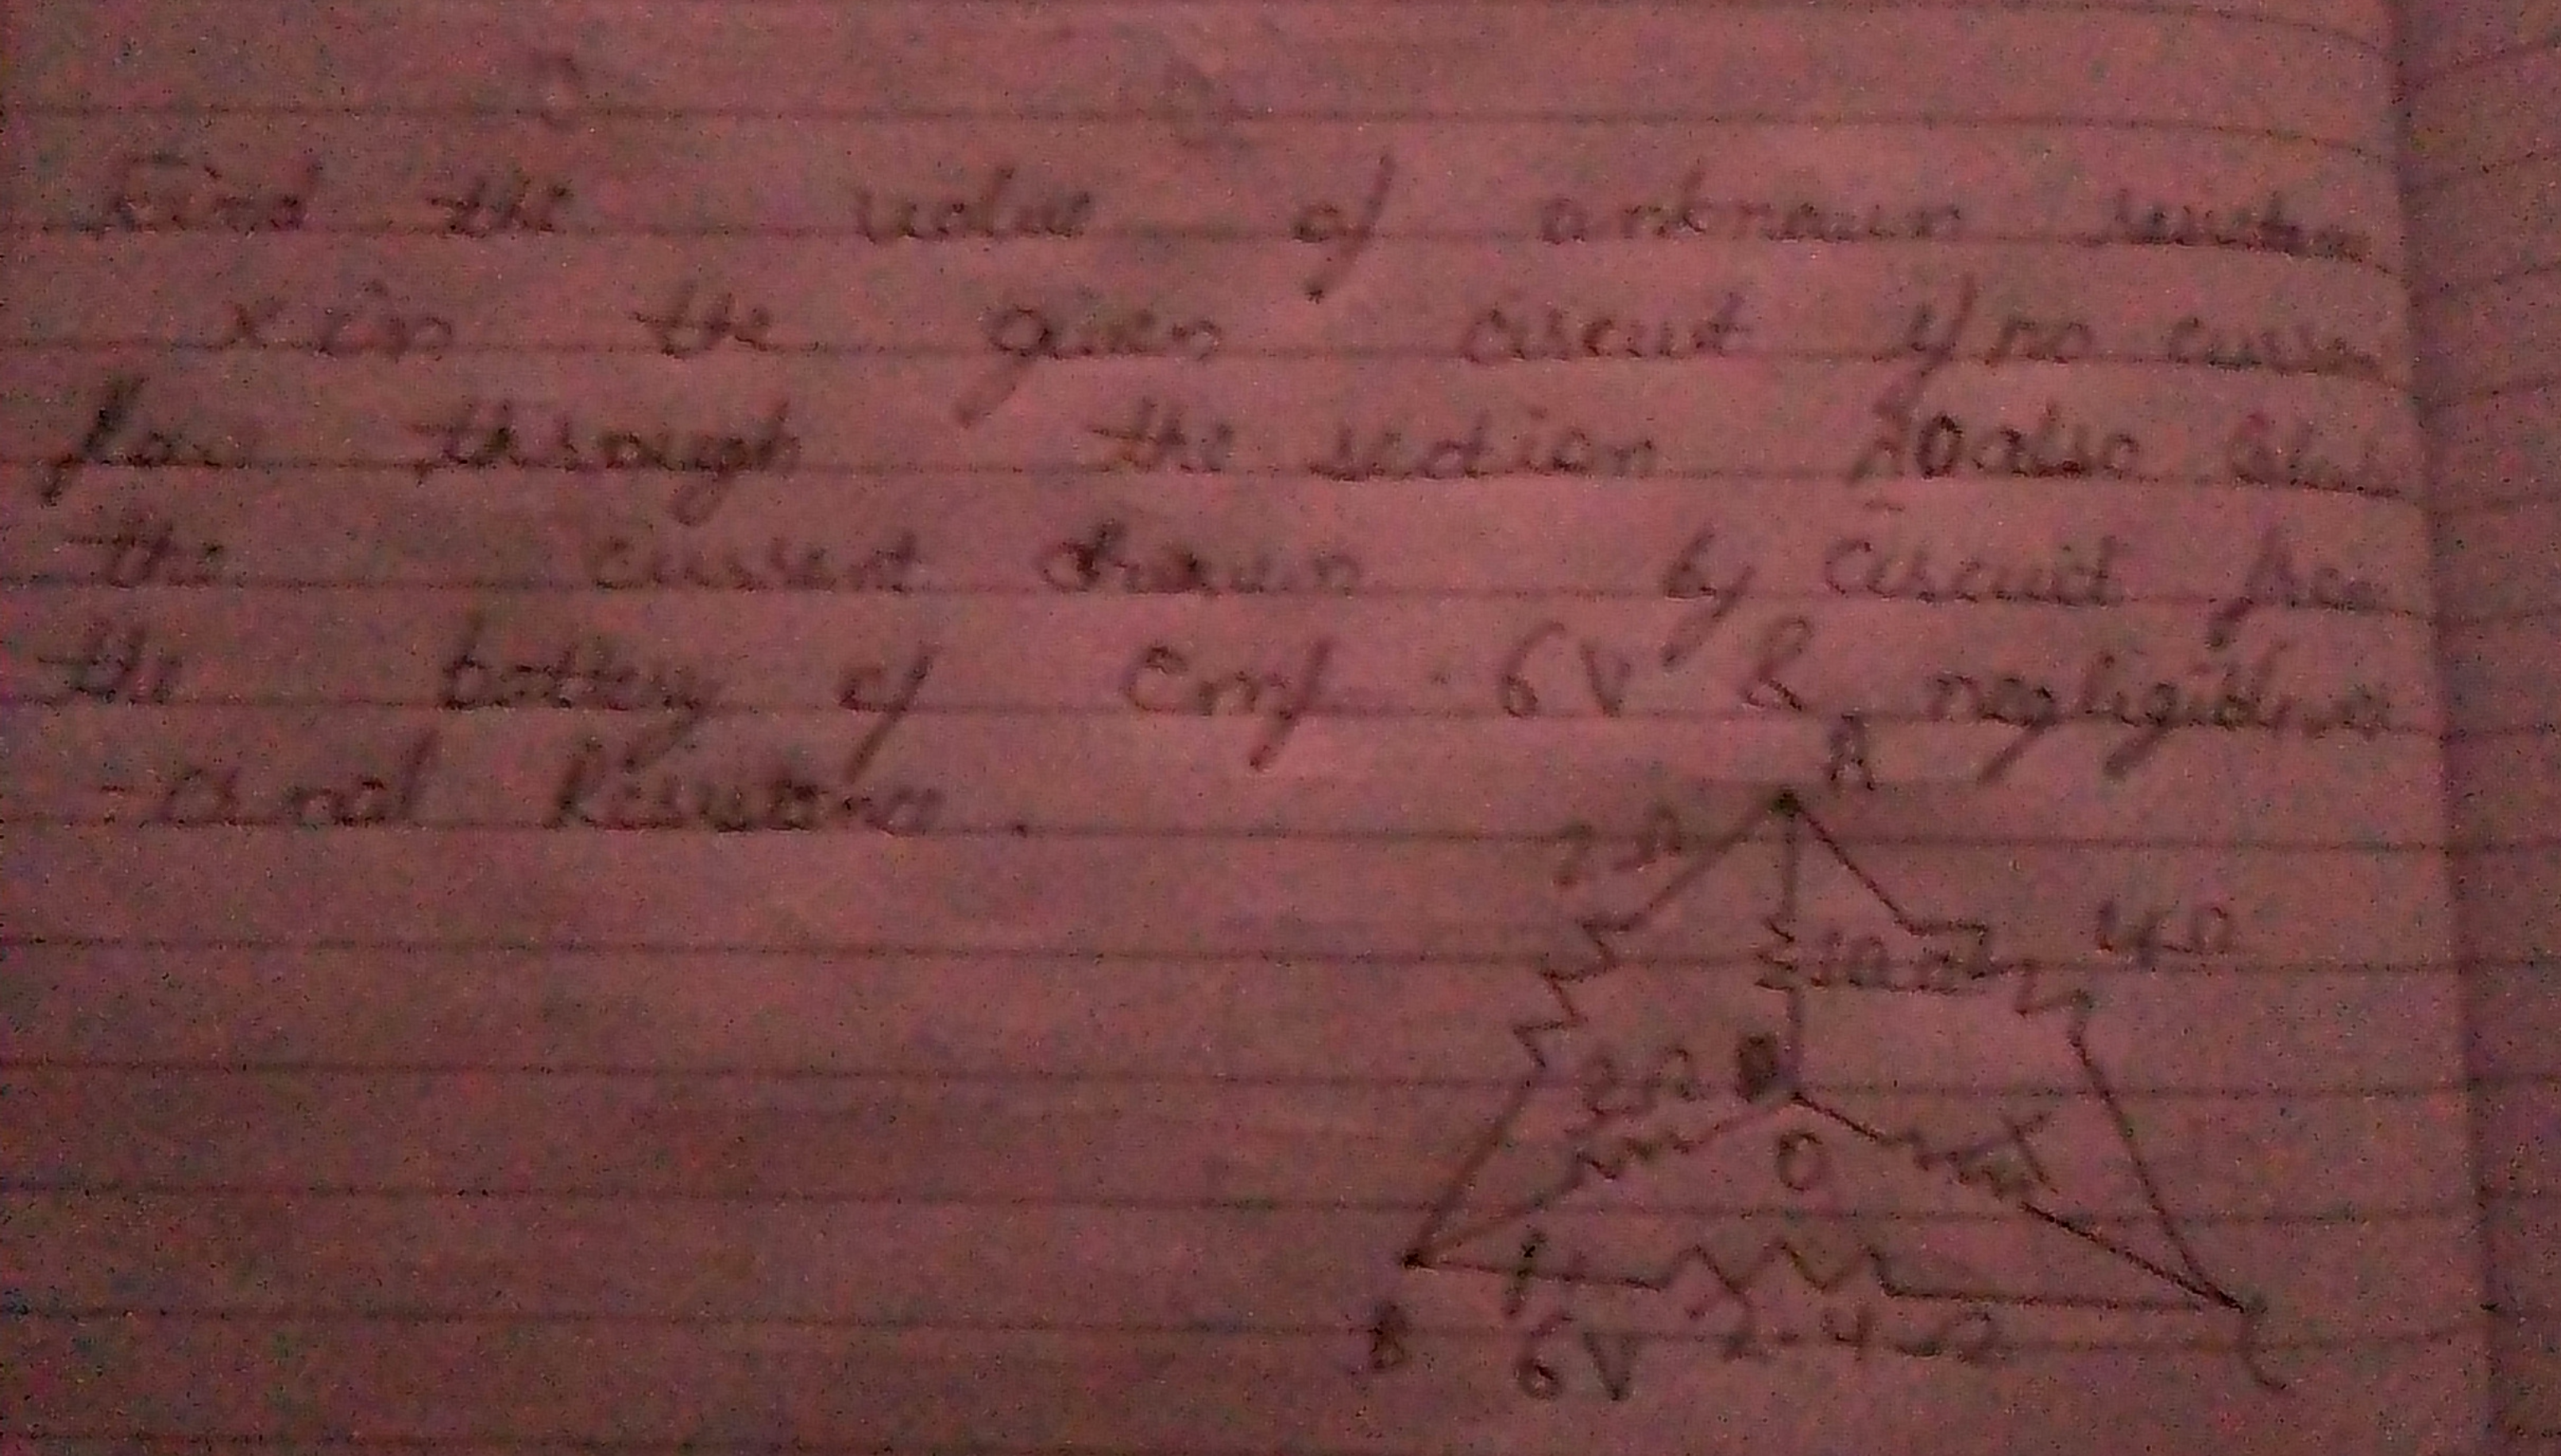 Find the value of unknown resistan
X in the given circuit if no curre
flow through the section AO also
the current drawn by circuit from
the battery of Emf 6V & negligible
- nal Resistance.
A
2Ω
4Ω
10Ω
2Ω
X
O
B
6V
2.4Ω
C